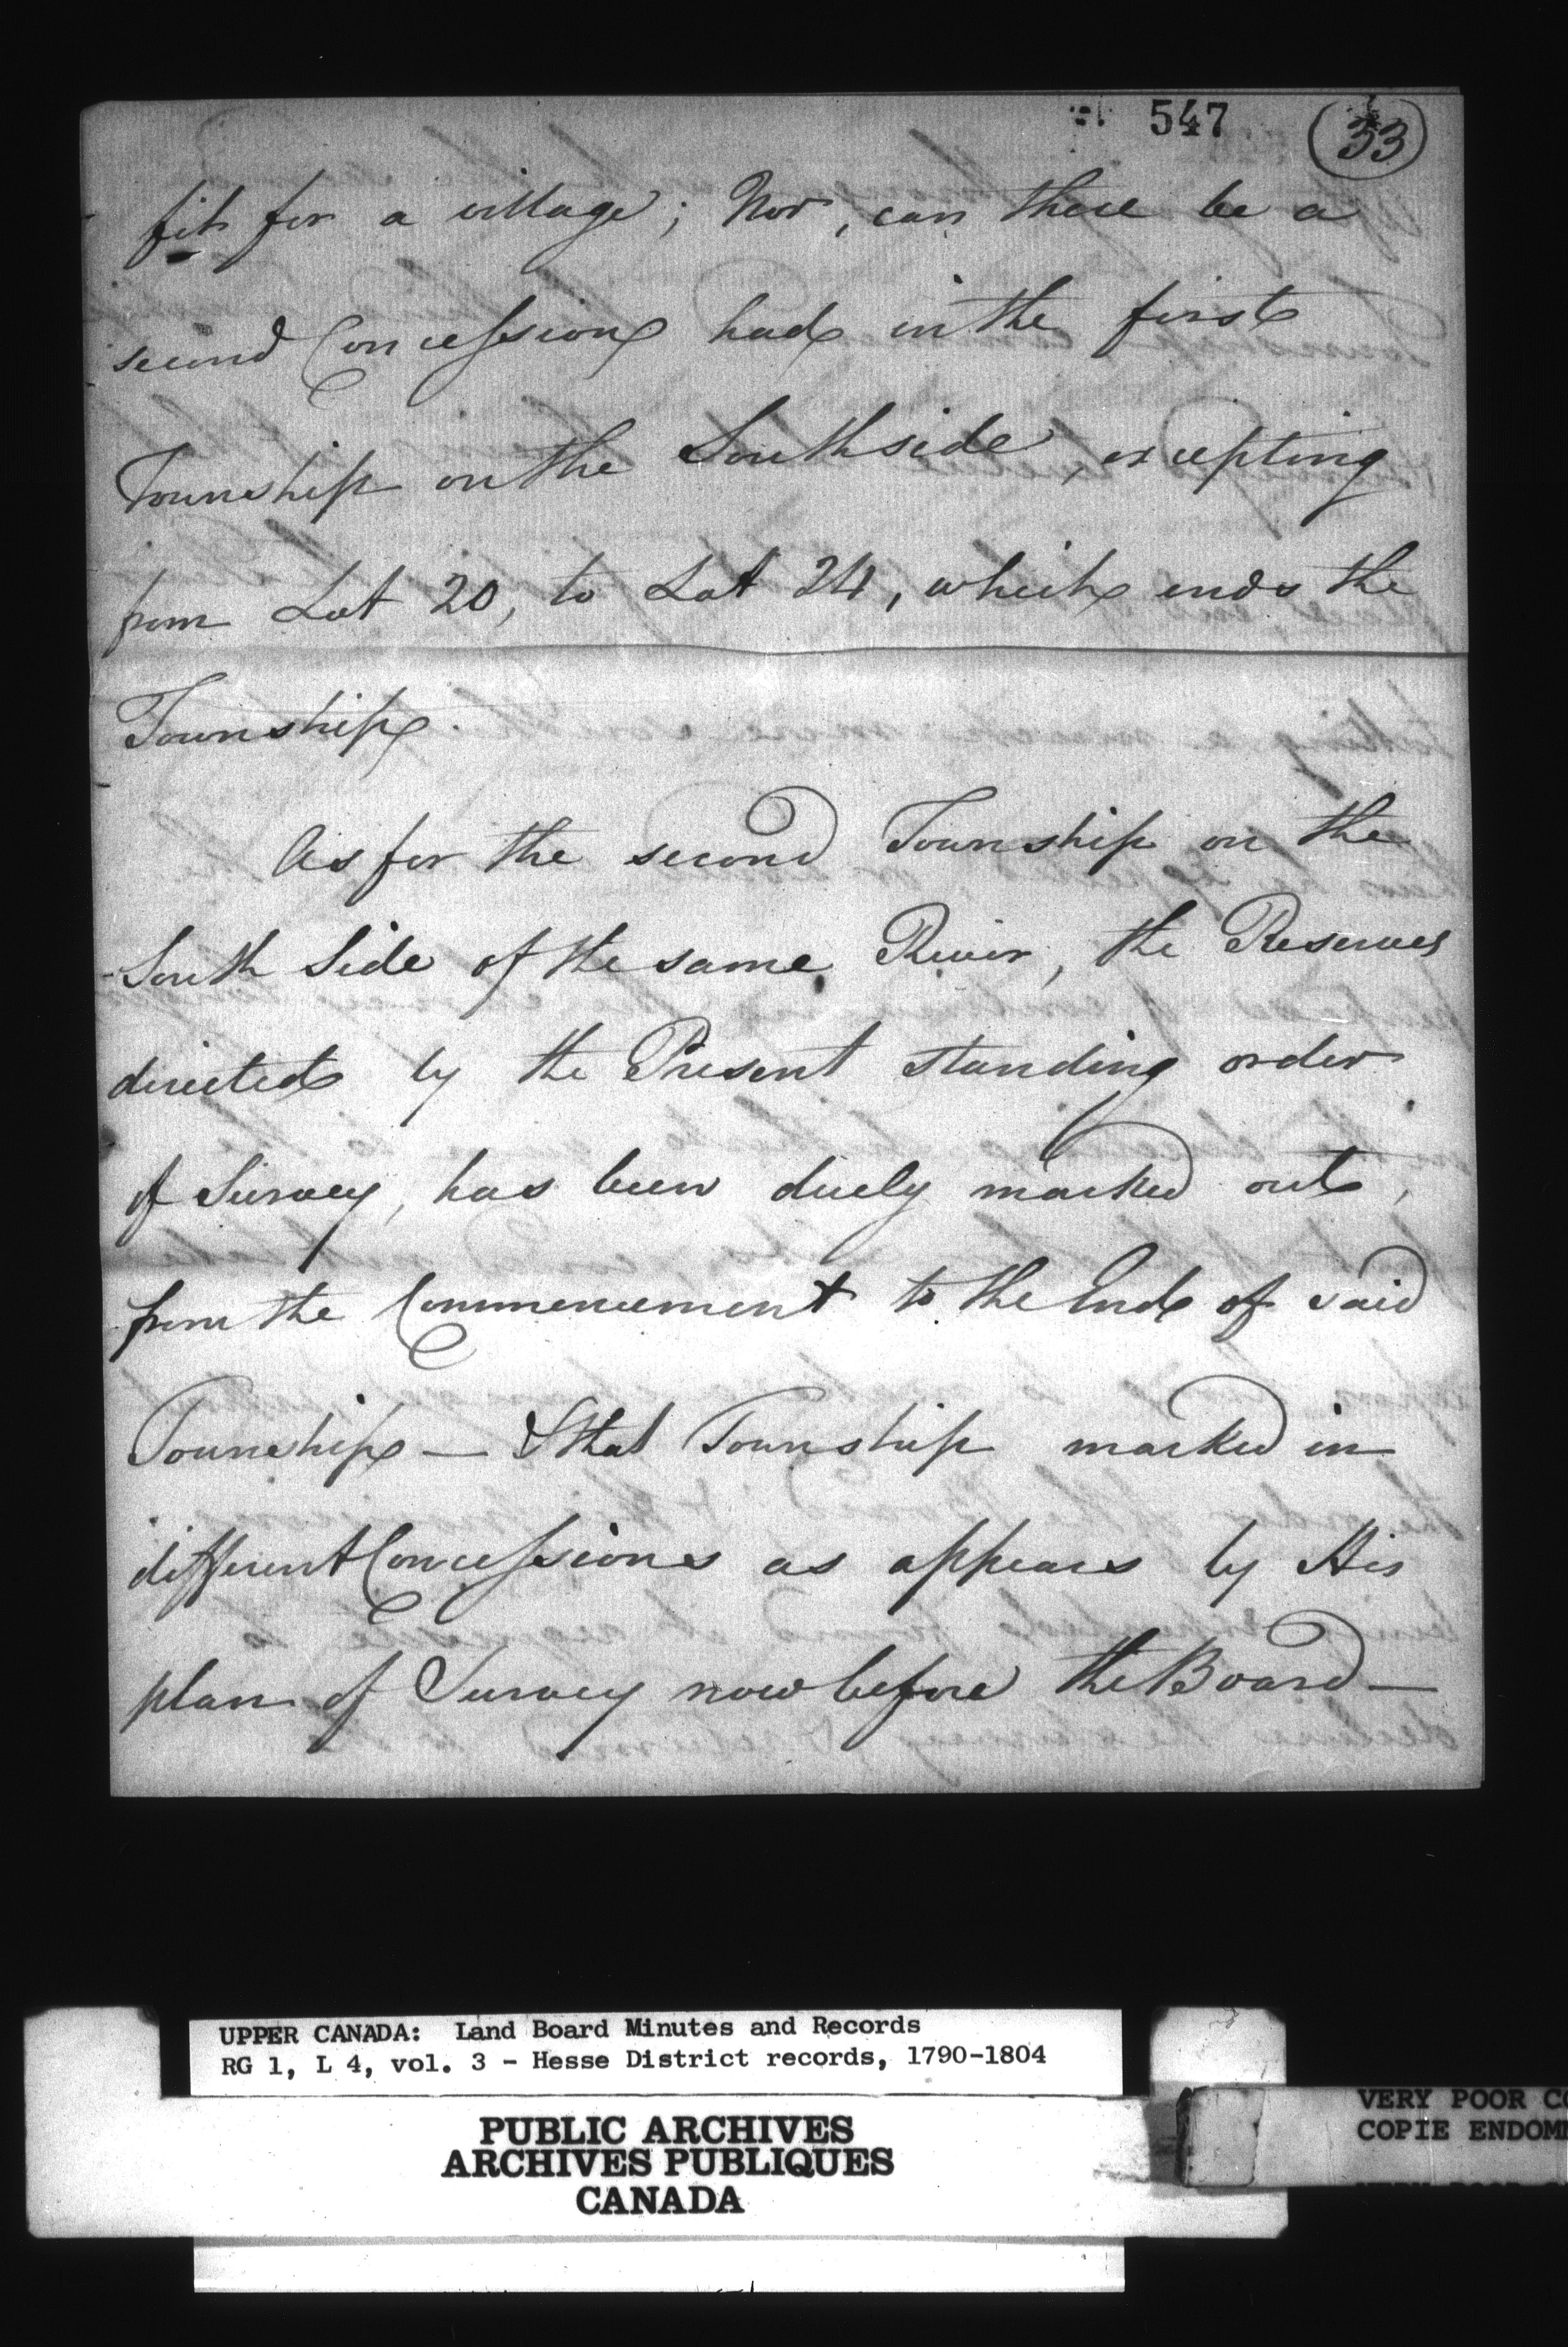 547
33
fit for a village; Nor, can there be a
second Concession had in the first
Township on the South side, excepting
from Lot 20, to Lot 24, which ends the
Township.
As for the second Township on the
South Side of the same River, the Reserves
directed by the Present standing order
of Survey, has been duely marked out,
from the Commencement to the End of said
Township — & that Township marked in
different Concessions as appears by His
plan of Survey now before the Board —
UPPER CANADA: Land Board Minutes and Records
RG 1, L 4, vol. 3 - Hesse District records, 1790-1804
PUBLIC ARCHIVES
ARCHIVES PUBLIQUES
CANADA
VERY POOR CO
COPIE ENDOM